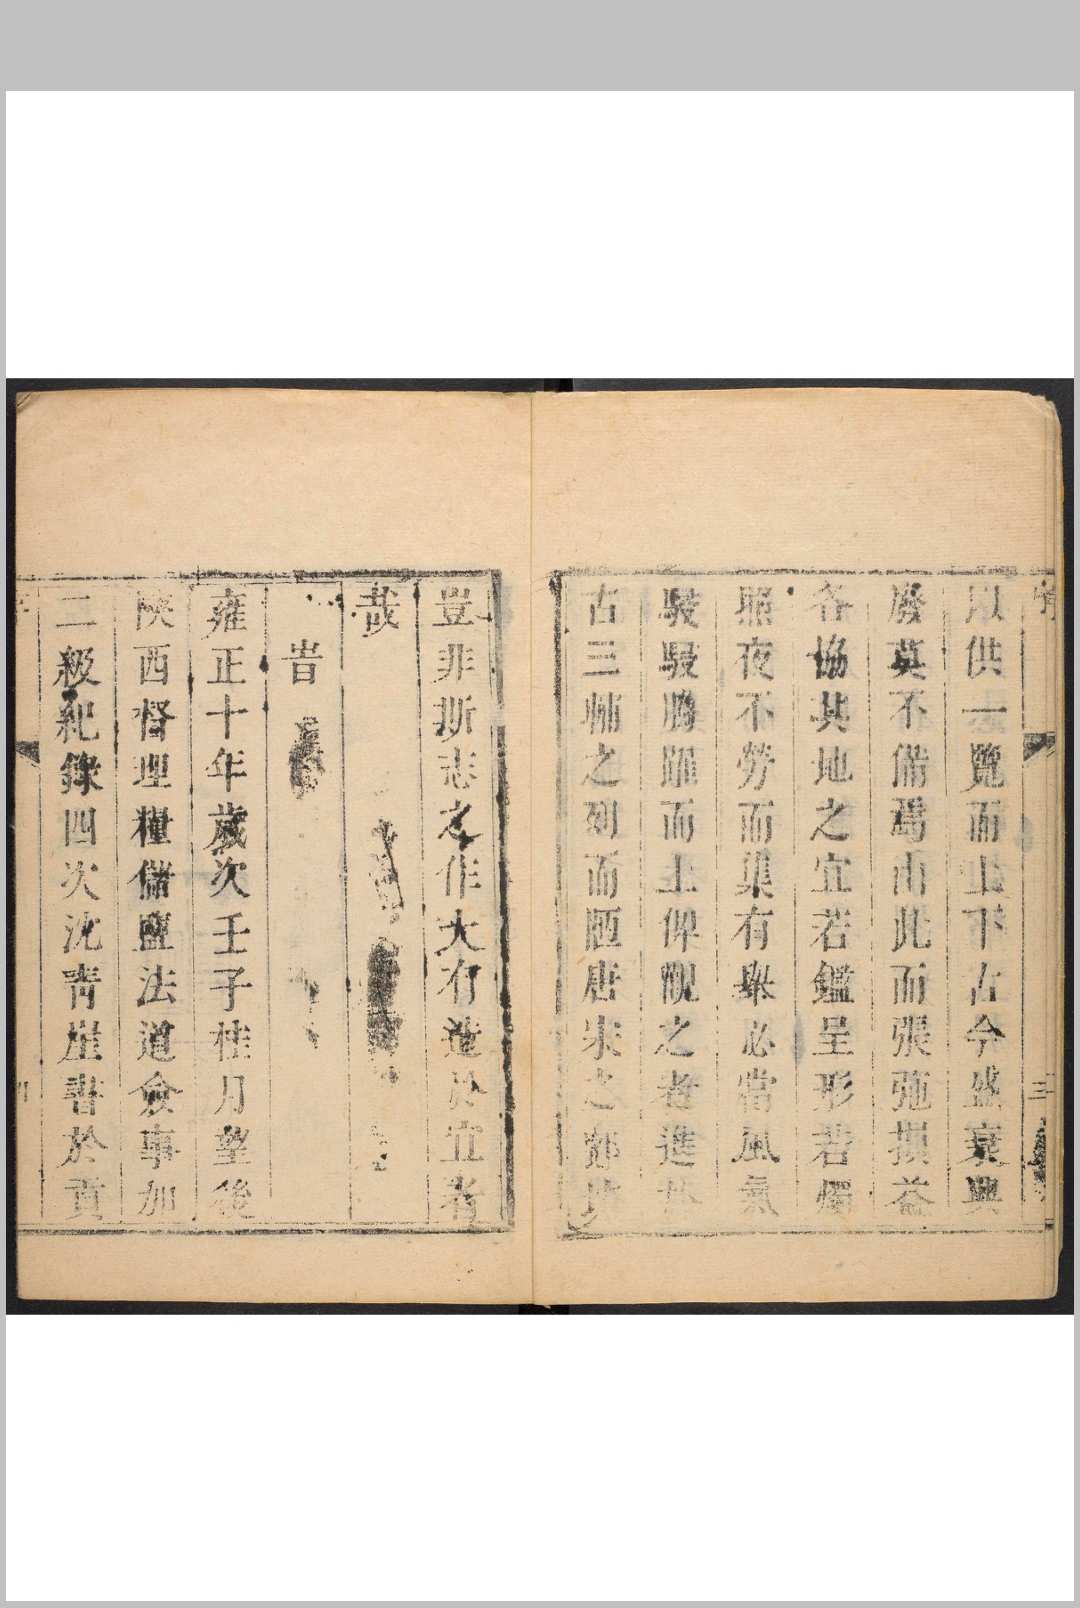 序
以供一覽而上下古今盛衰興
廢莫不備焉由此而張弛損益
各協其地之宜若鑑呈形若燭
照夜不勞而集有舉必當風氣
駸駸騰躍而上俾覩之者進於
古三輔之列而陋唐宋之鄜坊
三
豈非斯志之作大有造於宜者
哉
旹
雍正十年歲次壬子桂月望後
陝西督理糧儲鹽法道僉事加
二級紀錄四次沈靑崖書於貢